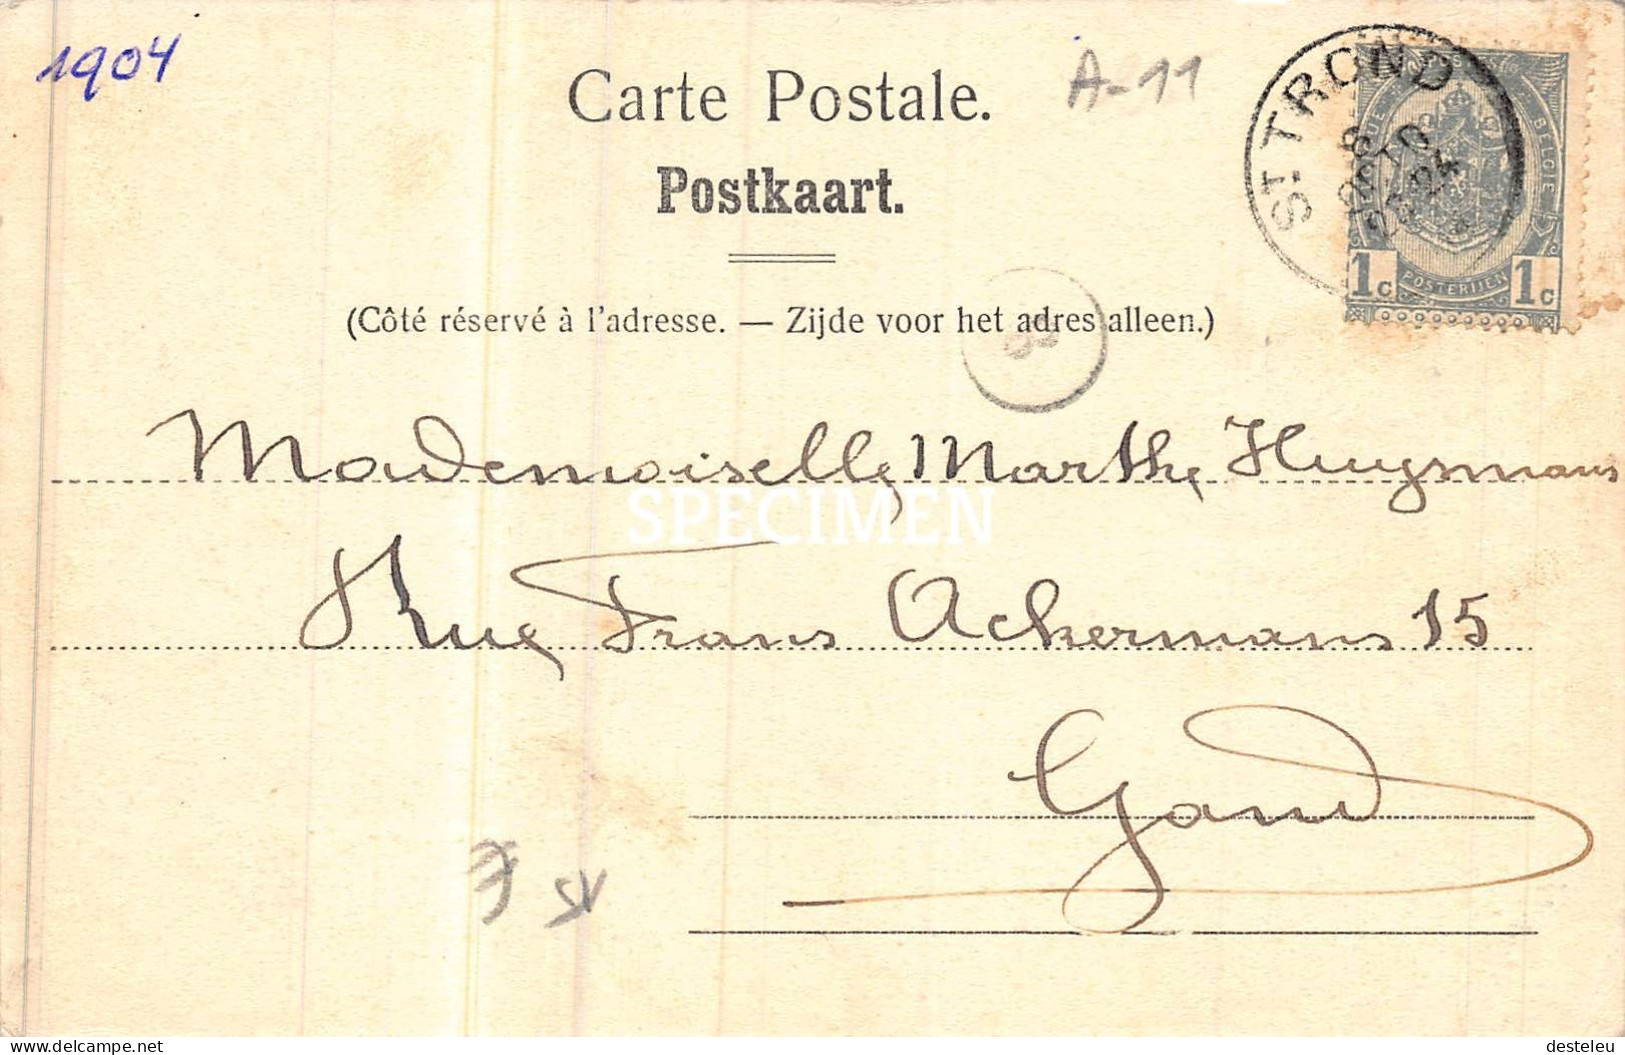 1904
Carte Postale.
A-11
ST TROND
BELGIE
Postkaart.
1c POSTERIJEN 1c
(Côté réservé à l'adresse. — Zijde voor het adres alleen.)
Mademoiselle Marthe Huysmans
SPECIMEN
Rue Frans Ackermans 15
Gand
delcampe.net
desteleu